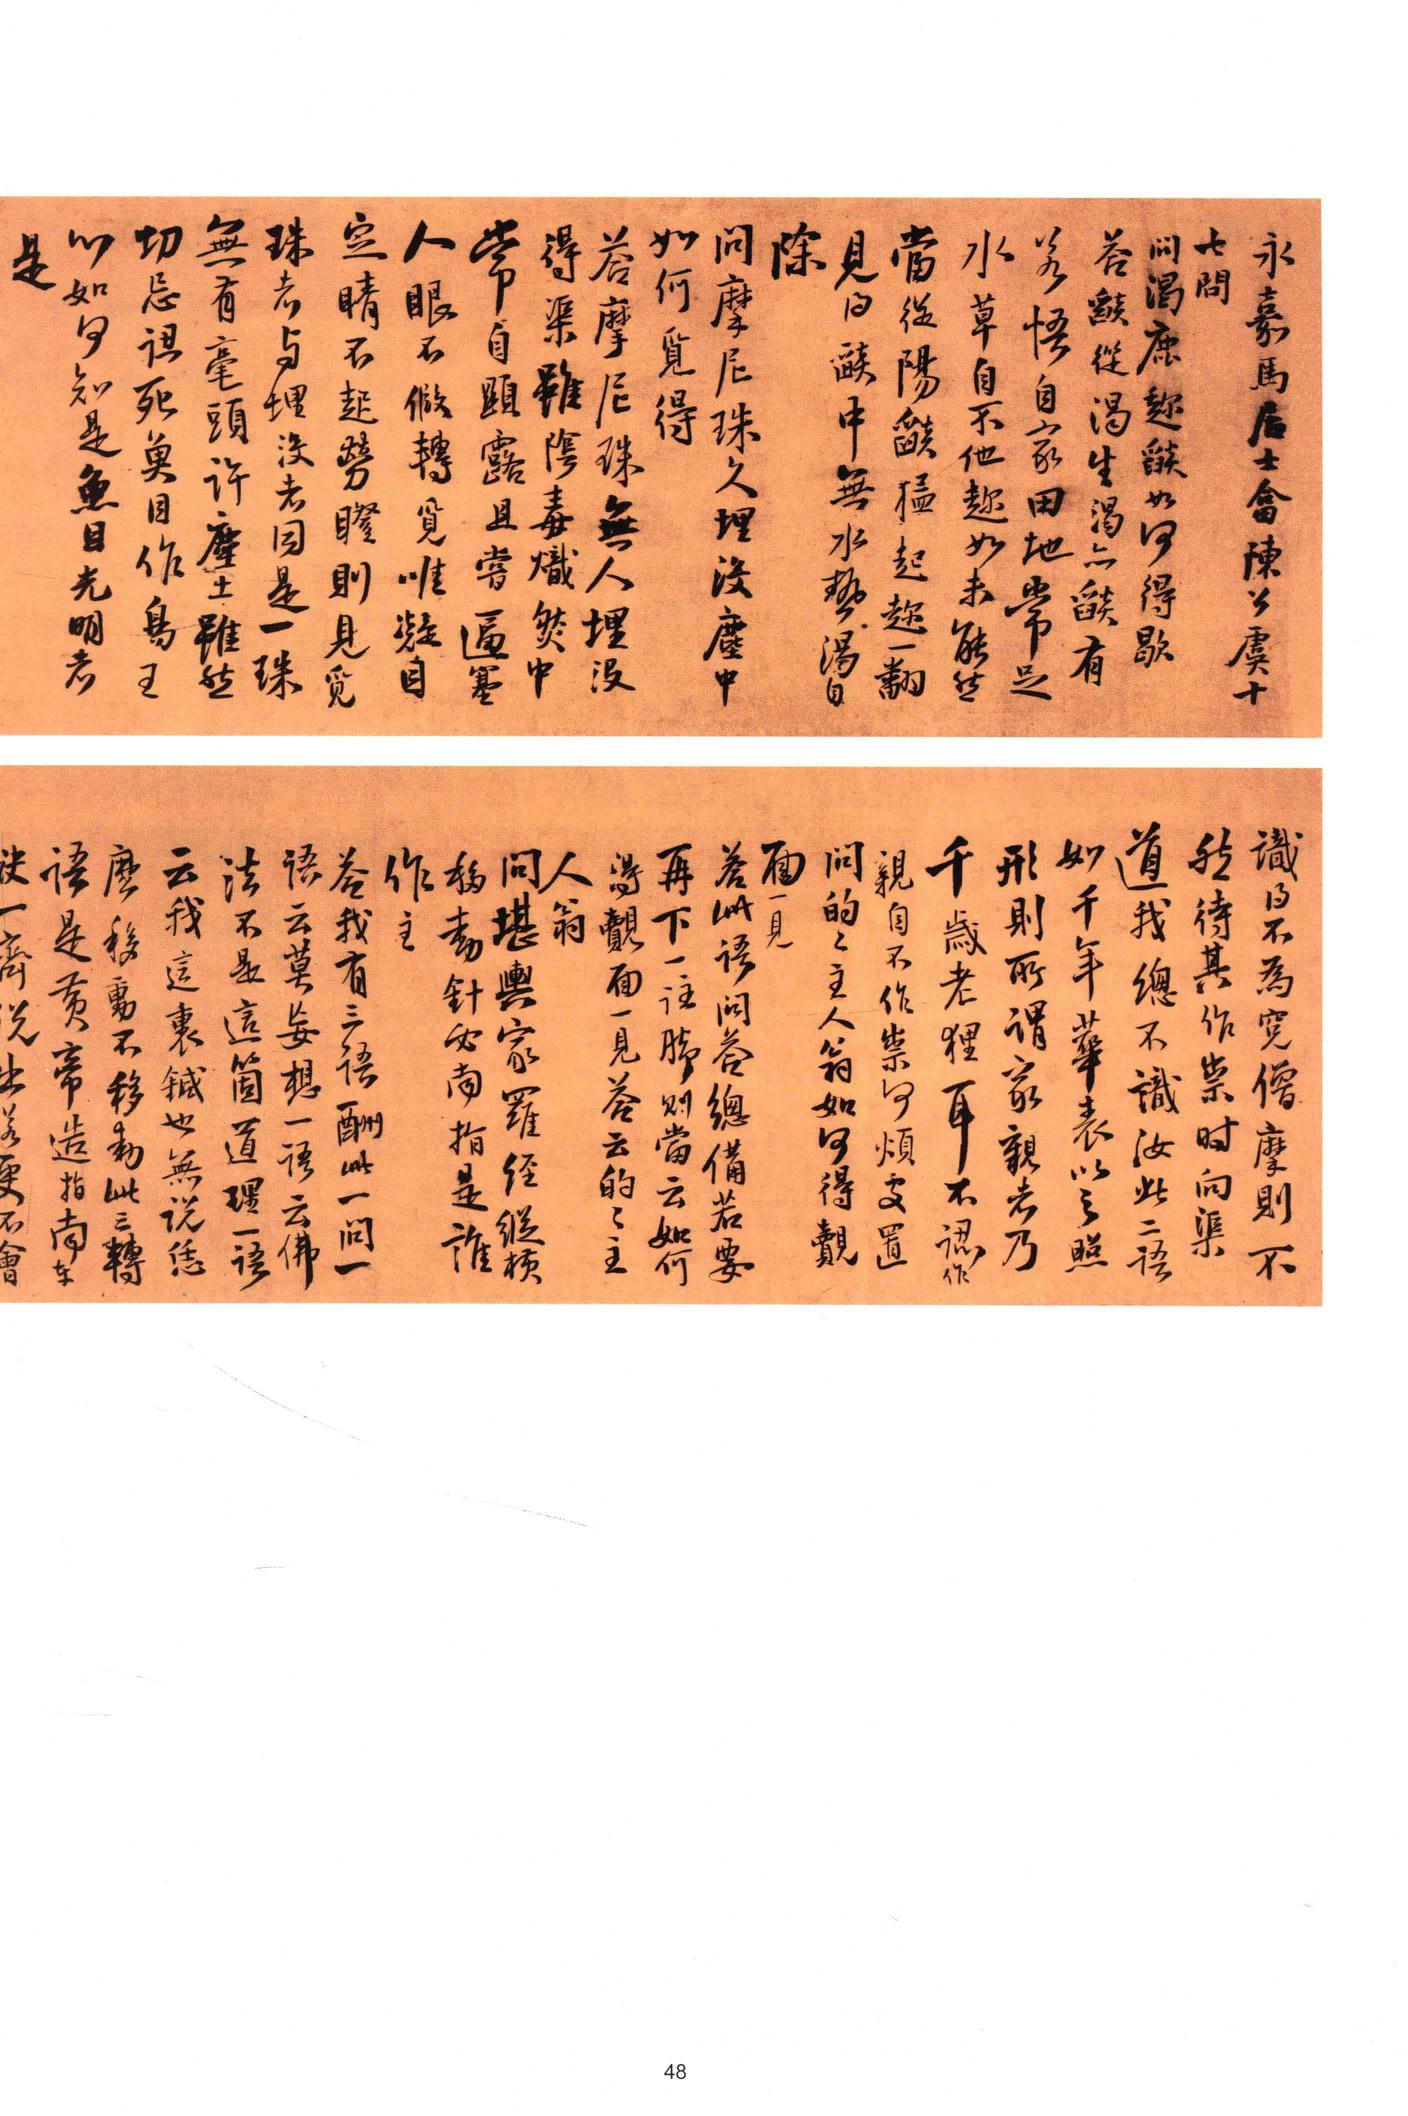 永嘉馬居士會陳公虞十
七問
問渴鹿趂燄如何得歇
答燄從渴生渴亡燄有
若悟自家田地常足
水草自不他趂如未能然
當從陽燄猛起趂一翻
見得燄中無水熱渴自
除
問摩尼珠久埋沒塵中
如何覓得
答摩尼珠無人埋沒
得渠雖陰毒熾然中
常自顯露且嘗逼塞
人眼不假轉覓唯凝目
定睛不起勞瞪則見覓
珠者与埋沒者同是一珠
無有毫頭許塵土雖然
切忌誤死魚目作烏王
如何知是魚目光明者
是
識得不為究僧摩則不
然待其作祟时向渠
道我總不識汝此二語
如千年華表以之照
形則所謂家親者乃
千歲老狸耳不認作
親自不作祟何煩安置
問的的主人翁如何得覿
面一見
答此語問答總備若要
再下一註腳則當云如何
得覿面一見答云的的主
人翁
問堪輿家羅經縱橫
移動針必南指是誰
作主
答我有三語酬此一問一
語云莫妄想一語云佛
法不是這箇道理一語
云我這裏鍼也無說恁
麼移動不移動此三轉
語是黃帝造指南车
訣一齊说出若更不會
48